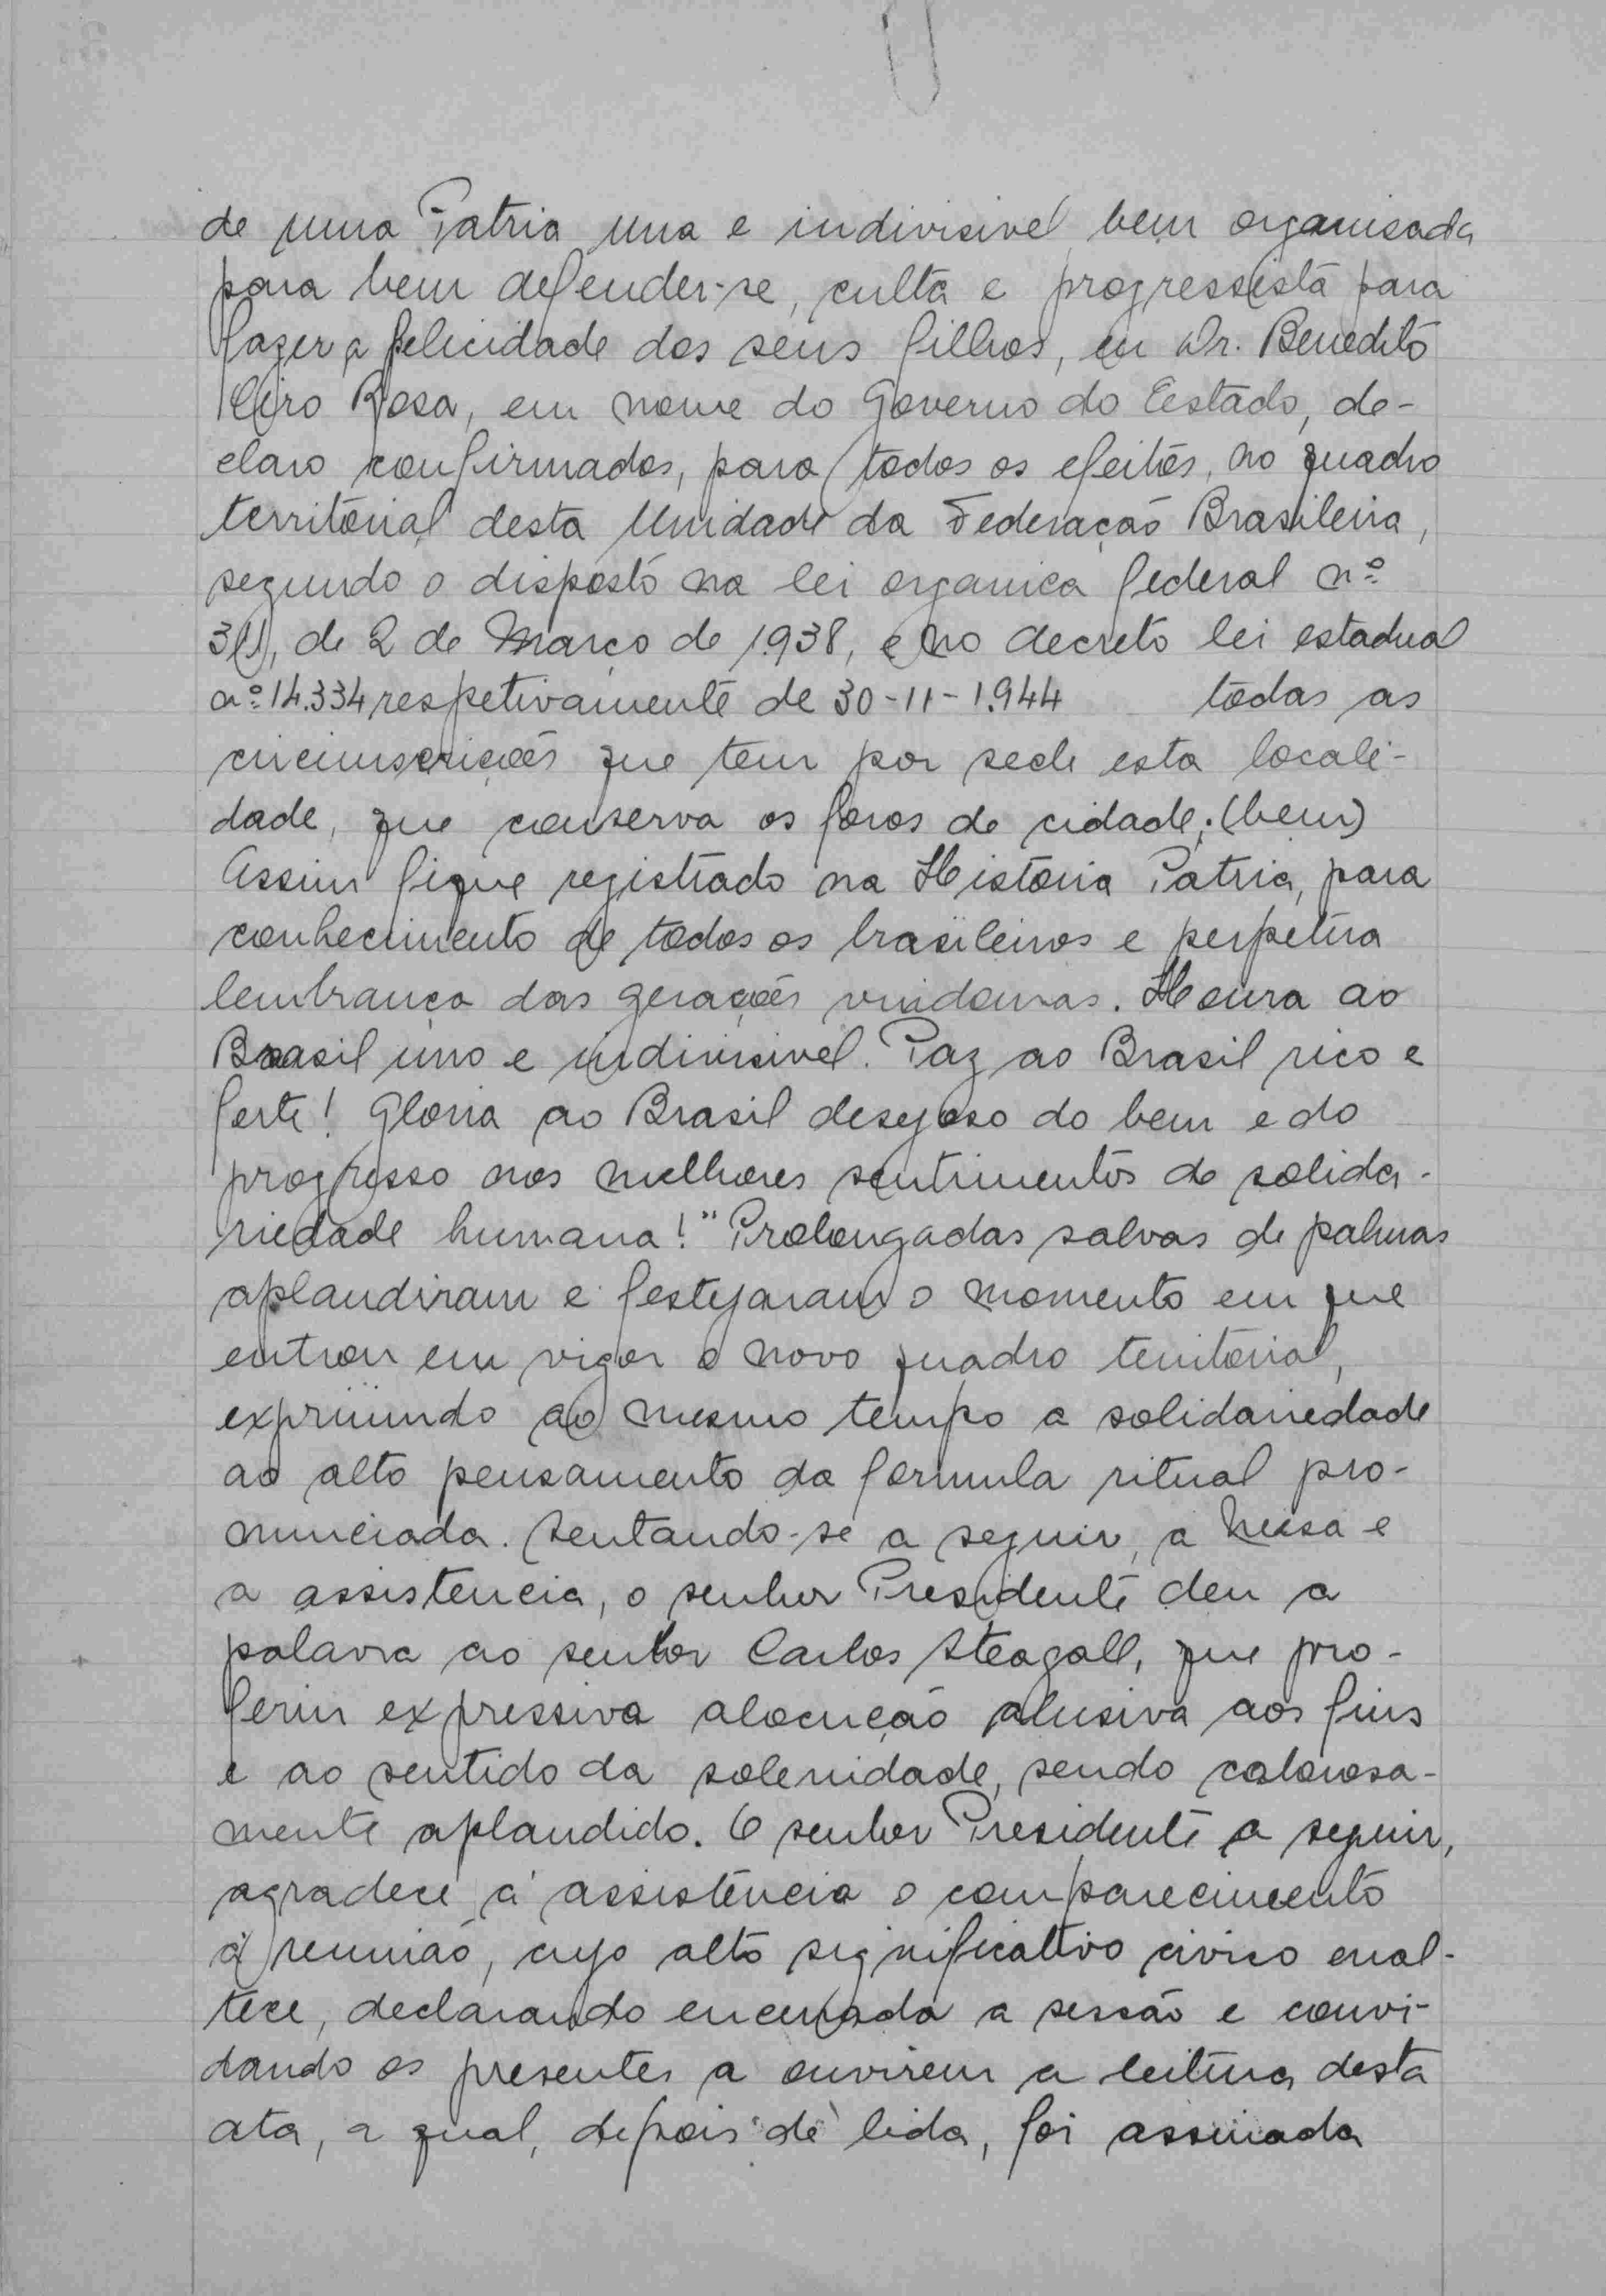 de uma Patria una e indivisivel bem organisada
para bem defender-se, culta e progressista para
fazer a felicidade dos seus filhos, eu Dr. Benedito
Ciro Rosa, em nome do Governo do Estado, de-
claro confirmados, para todos os efeitos, no quadro
territorial desta Unidade da Federação Brasileira,
segundo o disposto na lei organica federal nº
311, de 2 de Março de 1.938, e no decreto lei estadual
nº 14.334 respetivamente de 30-11-1.944 todas as
circunscrições que tem por sede esta locali-
dade, que conserva os foros de cidade; (bem)
Assim fique registrado na Historia Patria, para
conhecimento de todos os brasileiros e perpetua
lembrança das gerações vindouras. Honra ao
Brasil uno e indivisivel. Paz ao Brasil rico e
forte! Gloria ao Brasil desejoso do bem e do
progresso nos melhores sentimentos de solida-
riedade humana!" Prolongadas salvas de palmas
aplaudiram e festejaram o momento em que
entrou em vigor o novo quadro territorial,
exprimindo ao mesmo tempo a solidariedade
ao alto pensamento da formula ritual pro-
nunciada. Sentando-se a seguir, a Mesa e
a assistencia, o senhor Presidente deu a
palavra ao senhor Carlos Steagall, que pro-
feriu expressiva alocução alusiva aos fins
e ao sentido da solenidade, sendo calorosa-
mente aplaudido. O senhor Presidente a seguir,
agradece á assistência o comparecimento
á reunião, cujo alto significativo civico enal-
tece, declarando encerrada a sessão e convi-
dando os presentes a ouvirem a leitura desta
ata, a qual, depois de lida, foi assinada